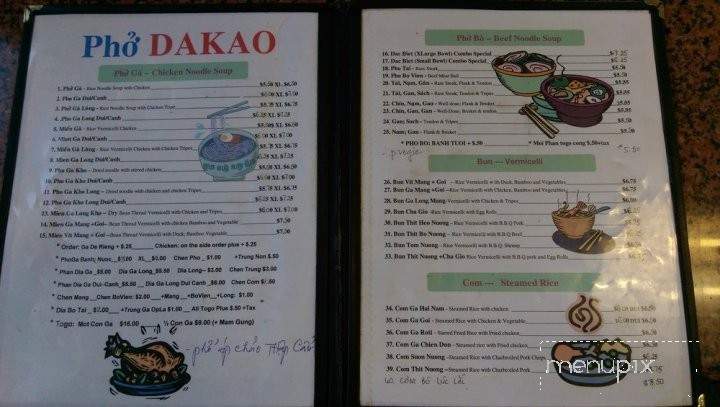 Phở DAKAO
Phở Gà - Chicken Noodle Soup
1. Phở Gà - Rice Noodle Soup with Chicken $5.50 XL $6.50
2. Pho Ga Dui/Canh XL $7.00
3. Phở Gà Lòng - Rice Noodle with Chicken Tripes $5.75 XL $6.75
4. Pho Ga Long Dui/Canh $6.25 XL $7.25
5. Miến Gà - Rice Vermicelli Chicken $5.50 $6.50
6. Mien Ga Dui/Canh $7.00
7. Miến Gà Lòng - Rice Vermicelli with Chicken Tripes $6.75
8. Mien Ga Long Dui/Canh $7.25
9. Pho Ga Kho - Dried noodle with chicken
10. Pho Ga Kho Dui/Canh XL $7.00
11. Pho Ga Kho Long - Dried noodle with chicken and chicken Tripes $5.75 XL $6.75
12. Pho Ga Kho Long Dui/Canh $6.25 XL $7.25
13. Mien Ga Long Kho - Dry Bean Thread Vermicelli with Chicken and Tripes $6.00 XL $7.00
14. Mien Ga Mang +Goi - Bean Thread Vermicelli with chicken Bamboo and Vegetable $7.50
15. Mien Vit Mang +Goi - Bean Thread Vermicelli with Duck, Bamboo and Vegetable $7.50
* Order: Ga De Rieng + $.25 Chicken: on the side order plus + $.25
* PhoGa Banh; Nuoc XL $3.00 Chen Pho $1.00 +Trung Non $.50
* Phan Dia Ga $5.00 Dia Ga Long $5.50 Dia Long-- $3.00 Chen Trung $3.00
* Phan Dia Ga Dui-Canh $5.50 Dia Ga Long Dui Canh $6.00 Chen Com
* Chen Mang Chen BoVien: $2.00 +Mang +BoVien +Long: $1.00
* Dia Bo Tai $7.00 + Trung Ga OpLa $1.00 All Togo Plus $.50 +Tax
* Togo: Mot Con Ga $16.00 ½ Con Ga $9.00 (+ Mam Gung)
Phở Bò - Beef Noodle Soup
16. Dac Biet (XLarge Bowl) Combo Special $7.25
17. Dac Biet (Small Bowl) Combo Special $6.25
18. Pho Tai - Rare Steak
19. Pho Bo Vien - Beef Meat Ball $5.50
20. Tai, Nam, Gan - Rare Steak, Flank & Tendon $5.85
21. Tai, Gan, Sach - Rare Steak, Tendon & Tripes $5.85
22. Chin, Nam, Gau - Well-done, Flank & Brisket $5.85
23. Chin, Gan, Gau - Well-Done, Brisket & tendon $5.85
24. Gau; Sach - Tendon & Brisket $5.50
25. Nam; Gau - Flank & Brisket $5.50
* PHO BO: BANH TUOI + $.50 * Moi Phan togo cong $.50+tax
$5.50
Bun --- Vermicelli
26. Bun Vit Mang + Goi - Rice Vermicelli with Duck, Bamboo and Vegetables $6.75
27. Bun Ga Mang +Goi - Rice Vermicelli with Chicken, Bamboo and Vegetables $6.75
28. Bun Ga Long Mang - Vermicelli with Chicken & Tripes $6.50
29. Bun Cha Gio - Rice Vermicelli with Egg Rolls
30. Bun Thit Heo Nuong - Rice Vermicelli with B.B.Q Pork $6.50
31. Bun Thit Bo Nuong - Rice Vermicelli with B.B.Q Beef $6.50
32. Bun Tom Nuong - Rice Vermicelli with B.B.Q Shrimp $6.50
33. Bun Thit Nuong +Cha Gio Rice Vermicelli with B.B.Q pork and Egg Rolls
Com --- Steamed Rice
34. Com Ga Hai Nam - Steamed Rice with chicken $6.50
35. Com Ga Goi - Steamed Rice with Chicken & Vegetable $6.50
36. Com Ga Roti - Steamed Rice with Fried chicken $6.50
37. Com Ga Chien Don - Steamed rice with Fried chicken $6.50
38. Com Suon Nuong - Steamed Rice with Charbroiled Pork Chops
39. Com Thit Nuong - Steamed Rice with Charbroiled Pork
40. CƠM BÒ LÚC LẮC $8.50
menupix